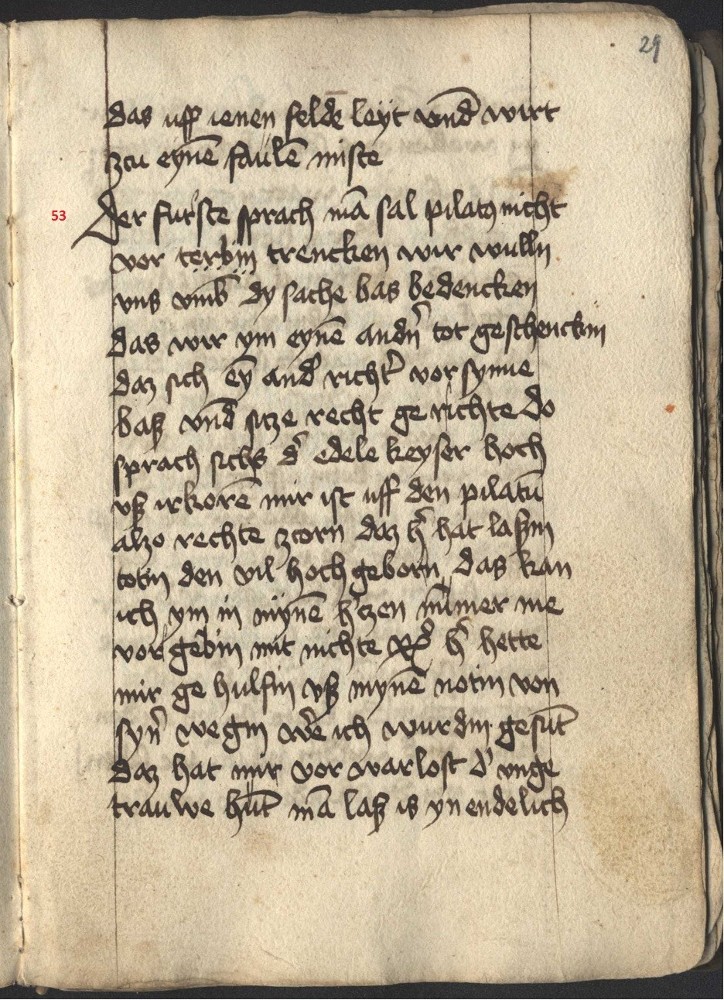 29
das uff ienen felde leyt vnd wirt
zcu eynē faulē miste
53
Der furste sprach mā sal pilatꝰ nicht
vor terbin trencken wir wulln
vns vmb dy sache bas bedencken
das wir ym eynē andn̄ tot geschenckin
daz sich ey and' richt' vor synne
baß vnd sitze recht ge richte do
sprach sichs d' edele keyser hoch
vß irkorē mir ist uff den pilatū
alzo rechte zcorn daz h' hat laßin
totin den vil hoch geborn das kan
ich ym in mynē h'zen nūmer me
vor gebin mit nichte h' hette
mir ge hulfin vß mynē notin von
syn' wegin wē ich wurdin gesūt
daz hat mir vor warlost d' vnge
trauwe hūt mā laß is yn endelich